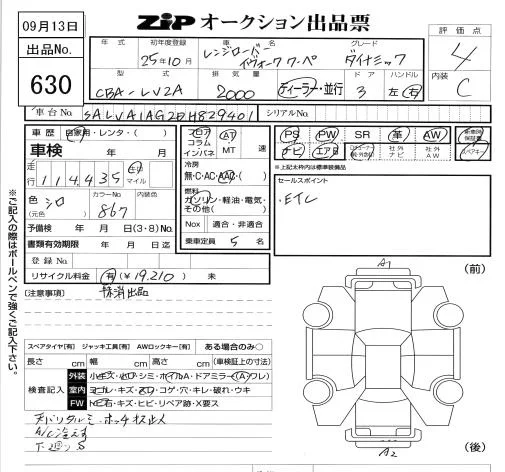 09月13日
ZIP オークション出品票
出品No.
630
年式 初年度登録 グレード
25年10月
レンジローバー
イヴォーク クーペ
ダイナミック
評価点
4
型式 排気量 ドア ハンドル
CBA-LV2A 2000 ディーラー・並行 3 左・右
内装
C
車台No. SALVA1AG2DH829401 シリアルNo.
車歴 自家用・レンタ・( )
車検 年 月
走行 114,435 キロ マイル
色 シロ (元色) カラーNo. 867 内装色
予備検 年 月 日(3・8)no.
書類有効期限 年 月 日迄
登録No.
リサイクル料金 有(¥19,210) 未
フロア コラム インパネ AT MT 速
冷房 無・C・AC・AAC・( )
燃料 ガソリン・軽油・電気・その他( )
Nox 適合・非適合
乗車定員 5 名
PS PW SR 革 AW
ナビ エアB 社外ナビ 社外AW
スペアキー
*上記太枠内は標準装備品
セールスポイント
・ETC
※ご記入の際はボールペンで強くご記入下さい。
[注意事項] 抹消出品
スペアタイヤ[有] ジャッキ工具[有] AWロックキー[有] ある場合のみ○
長さ cm 幅 cm 高さ cm (車検証上の寸法)
検査記入
外装 小キズ・凹・シミ・ホイルA・ドアミラー(A)ワレ)
室内 ヨゴレ・キズ・スレ・コゲ・穴・キレ・破れ・ウキ
FW トビ石・キズ・ヒビ・リペア跡・X要ス
天バリタルミ・ホッチ
A/C冷えず
下廻りS
A1
(前)
A2
(後)